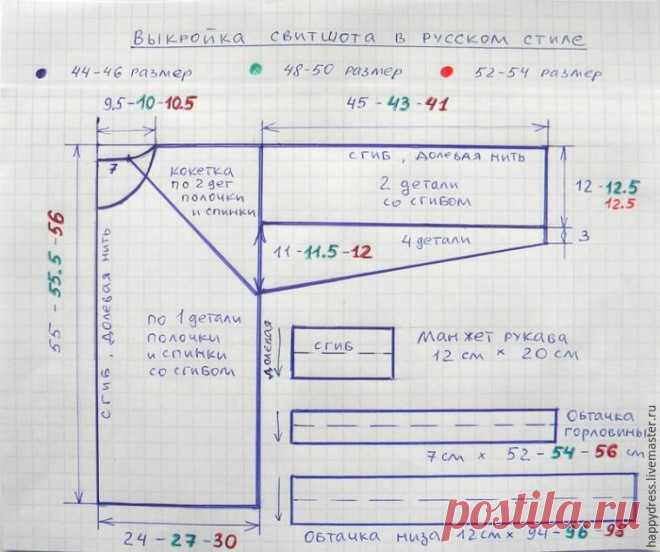 Выкройка свитшота в русском стиле
44-46 размер 48-50 размер 52-54 размер
9,5-10-10.5
45-43-41
7
кокетка
по 2 дет
полочки
и спинки
сгиб, долевая нить
2 детали
со сгибом
12-12.5
12.5
4 детали
3
11-11.5-12
55-55.5-56
сгиб, долевая нить
по 1 детали
полочки
и спинки
со сгибом
Долевая
сгиб
Манжет рукава
12 см × 20 см
Обтачка
горловины
7 см × 52-54-56 см
24-27-30
Обтачка низа 12 см × 94-96-
postila.ru
happydress.livemaster.ru